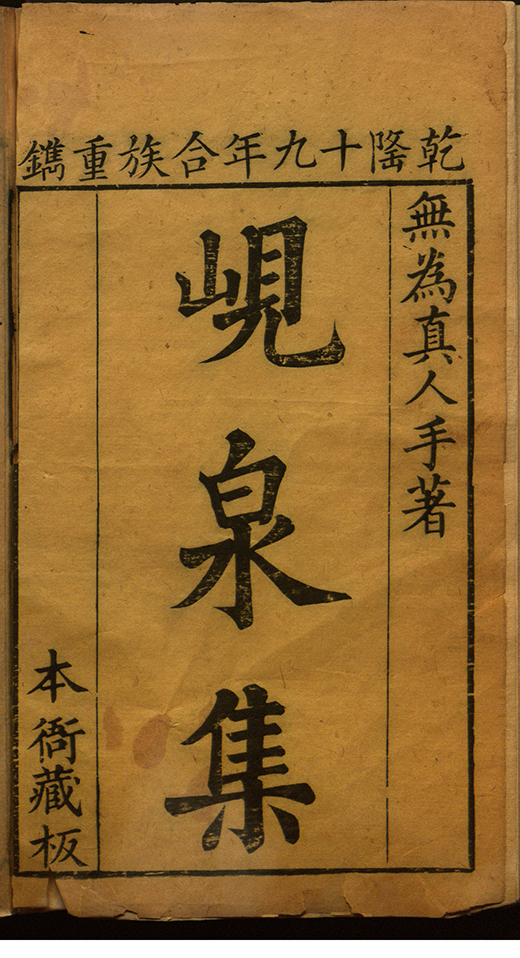 乾隆十九年合族重鐫
無為真人手著
峴泉集
本衙藏板